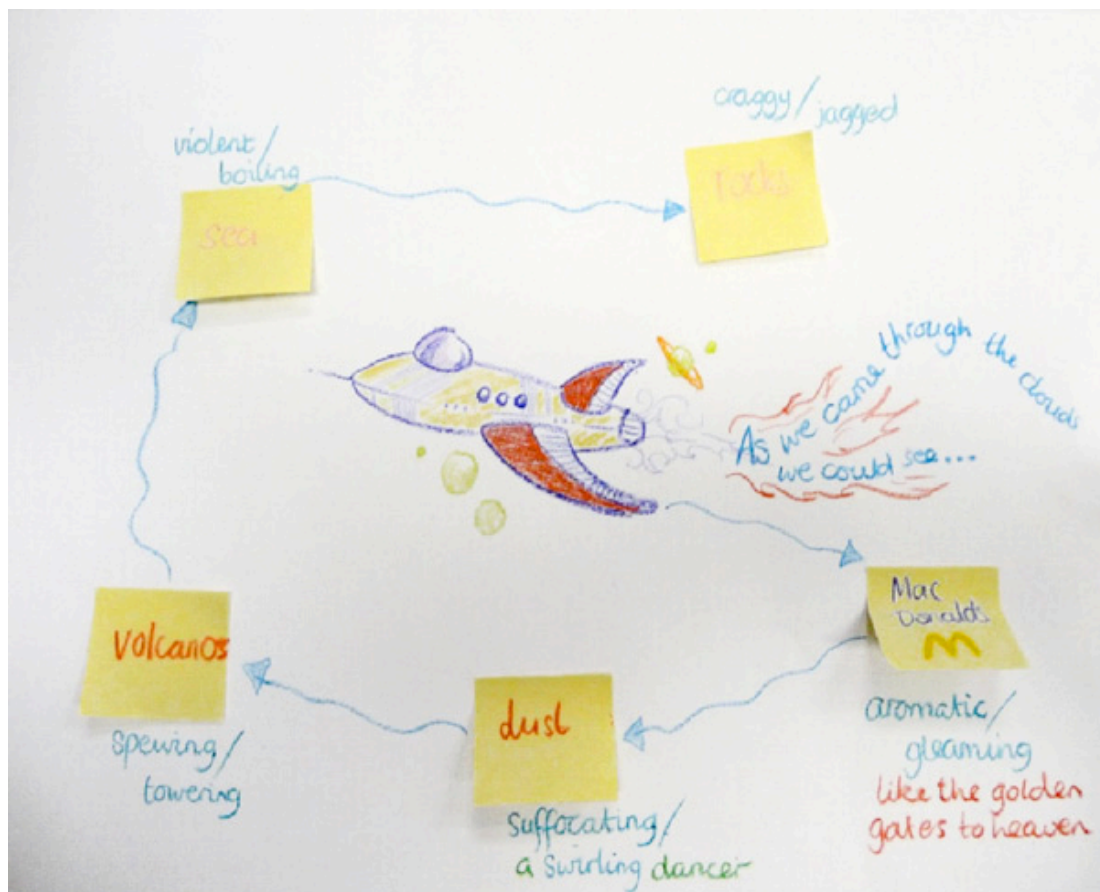 violent/
boiling
sea
craggy/
jagged
rocks
As we came through the clouds
we could see...
Mac
Donalds
M
aromatic/
gleaming
like the golden
gates to heaven
dust
suffocating/
a swirling dancer
Volcanos
spewing/
towering